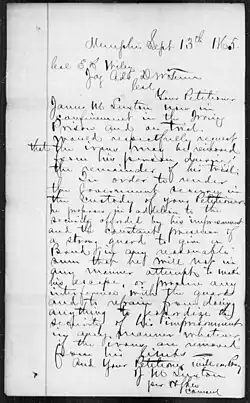 Memphis Sept 13th 1865
Col E. A. Wiley
Your Petitioner
James M. Luxton now in
imprisonment in the Irving
Prison and on trial
would respectfully request
that the irons may be removed
from his person during
the remainder of his trial.
In order to render
the Government secure in
the custody of your Petitioner
he proposes in addition to the
security of his imprisonment
and the constant presence of
a strong guard to give a
Bond in any reasonable
sum that he will not in
any manner attempt to make
his escape, or
with the guard
and to refrain from doing
anything to jeopardize the
security of his imprisonment
in any manner whatever
if the irons are removed
from his limbs
And Your Petitioner will ever Pray
J M Luxton
Counsel